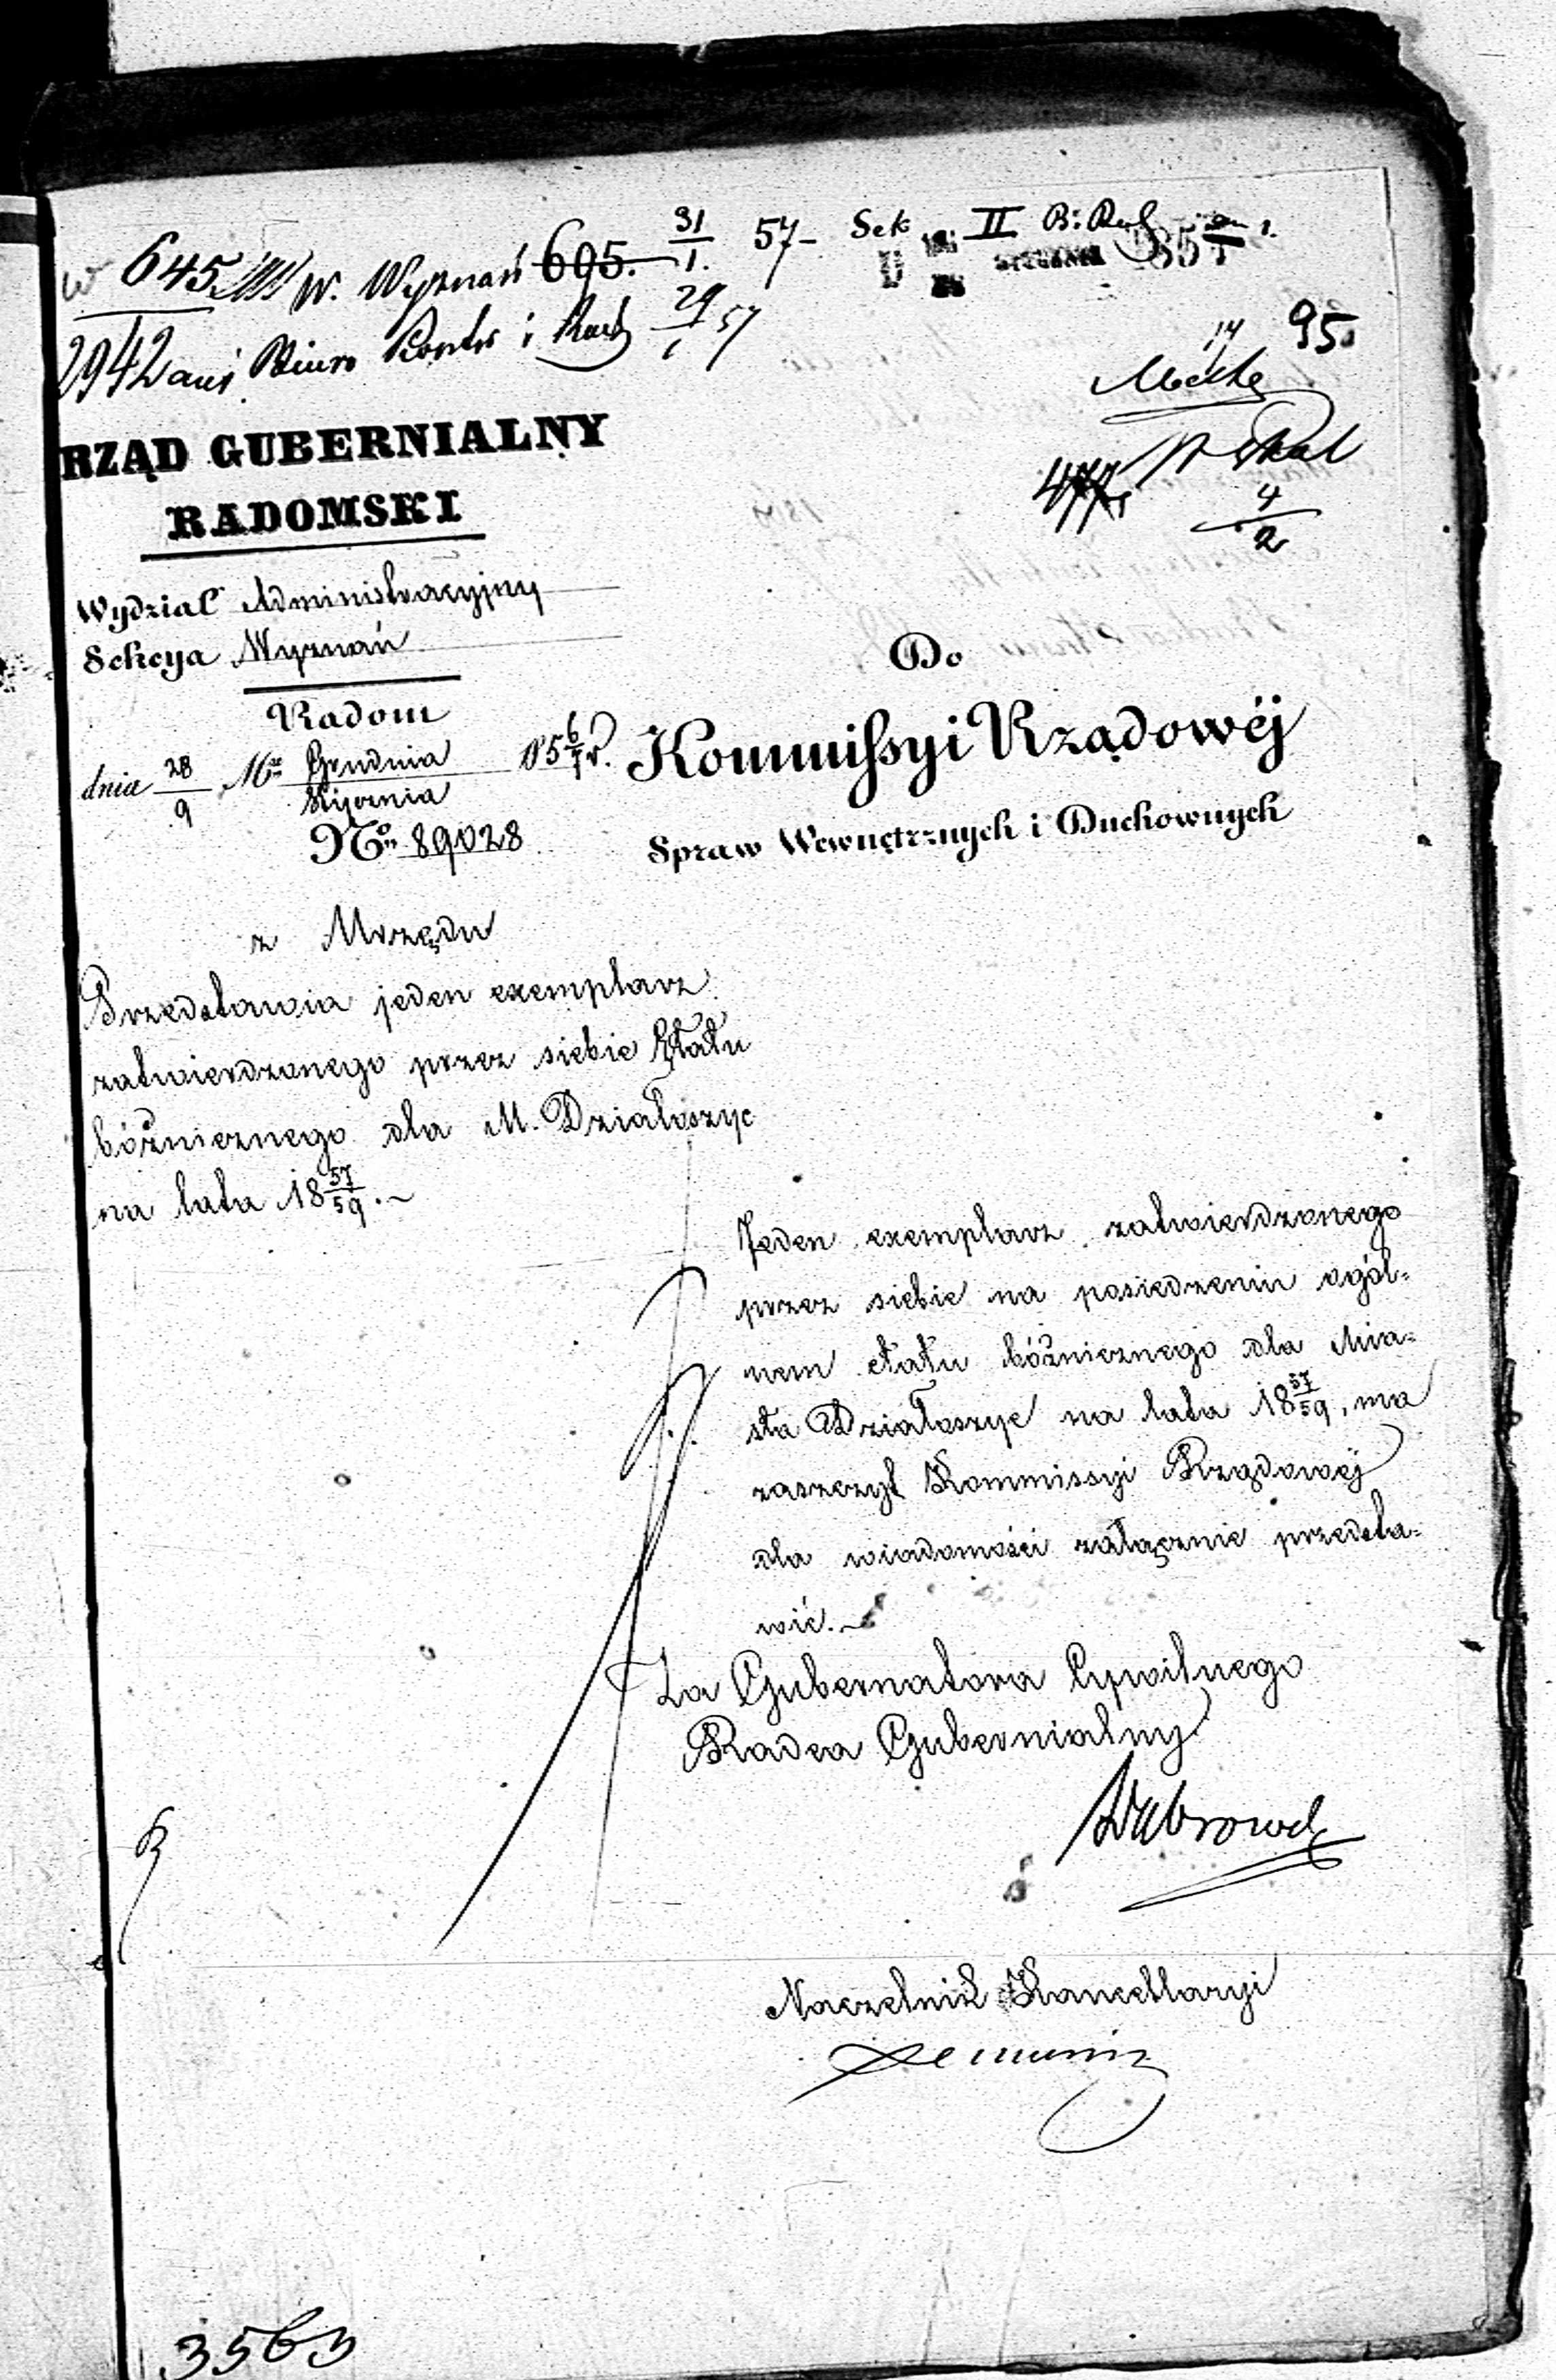 645 W. Wyznań 695. 31/1. 57 -
Sek II
2942 Biuro Kontr i Rach 29/1 57
95
4/2
RZĄD GUBERNIALNY
RADOMSKI
Wydział Administracyjny
Sekcya Wyznań
Radom
dnia 28/9 Mca Grudnia/Stycznia 185 6/7 r.
No 89028
Do
Kommissyi Rządowéj
Spraw Wewnętrznych i Duchownych
z Urzędu
Przedstawia jeden exemplarz
zatwierdzonego przez siebie Etatu
bóżnicznego dla M. Działoszyc
na lata 18 57/59 . ~
Jeden exemplarz zatwierdzonego
przez siebie na posiedzeniu ogól=
nem etatu bóżnicznego dla Mia=
sta Działoszyc na lata 18 57/59, ma
zaszczyt Kommissyi Rządowéj
dla wiadomości załącznie przedsta=
wić. ~
Za Gubernatora Cywilnego
Radca Gubernialny
Naczelnik Kancellaryi